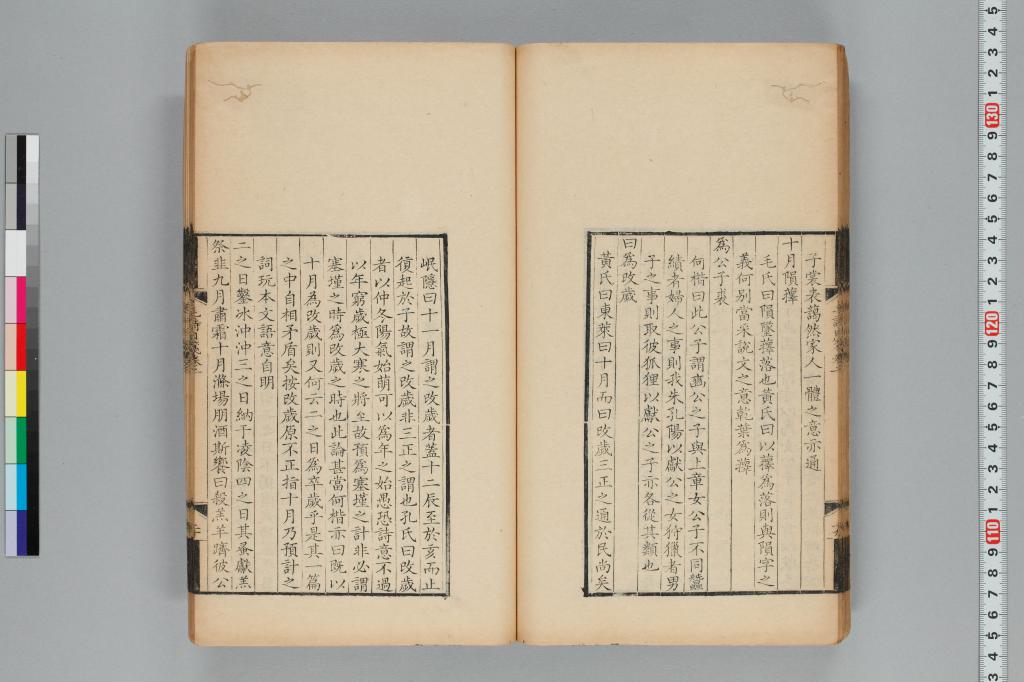 子裳表藹然家人一體之意亦通
十月隕蘀
毛氏曰隕墜蘀落也黃氏曰以蘀為落則與隕字之
義何別當采說文之意乾葉為蘀
為公子裘
何楷曰此公子謂豳公之子與上章女公子不同蠶
績者婦人之事則我朱孔陽以獻公之女狩獵者男
子之事則取彼狐狸以獻公之子亦各從其類也
曰為改歲
黃氏曰東萊曰十月而曰改歲三正之通於民尚矣
岷隱曰十一月謂之改歲者蓋十二辰至於亥而止
復起於子故謂之改歲非三正之謂也孔氏曰改歲
者以仲冬陽氣始萌可以為年之始愚恐詩意不過
以年窮歲極大寒之將至故預為塞墐之計非必謂
塞墐之時為改歲之時也此論甚當何楷亦曰既以
十月為改歲則又何云二之日為卒歲乎是其一篇
之中自相矛盾矣按改歲原不正指十月乃預計之
詞玩本文語意自明
二之日鑿冰沖沖三之日納于凌陰四之日其蚤獻羔
祭韭九月肅霜十月滌場朋酒斯饗曰殺羔羊躋彼公